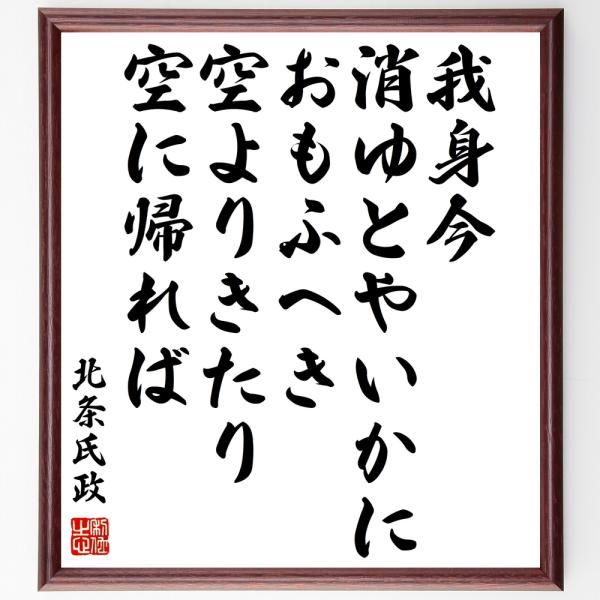 我身今
消ゆとやいかに
おもふへき
空よりきたり
空に帰れば
北条氏政